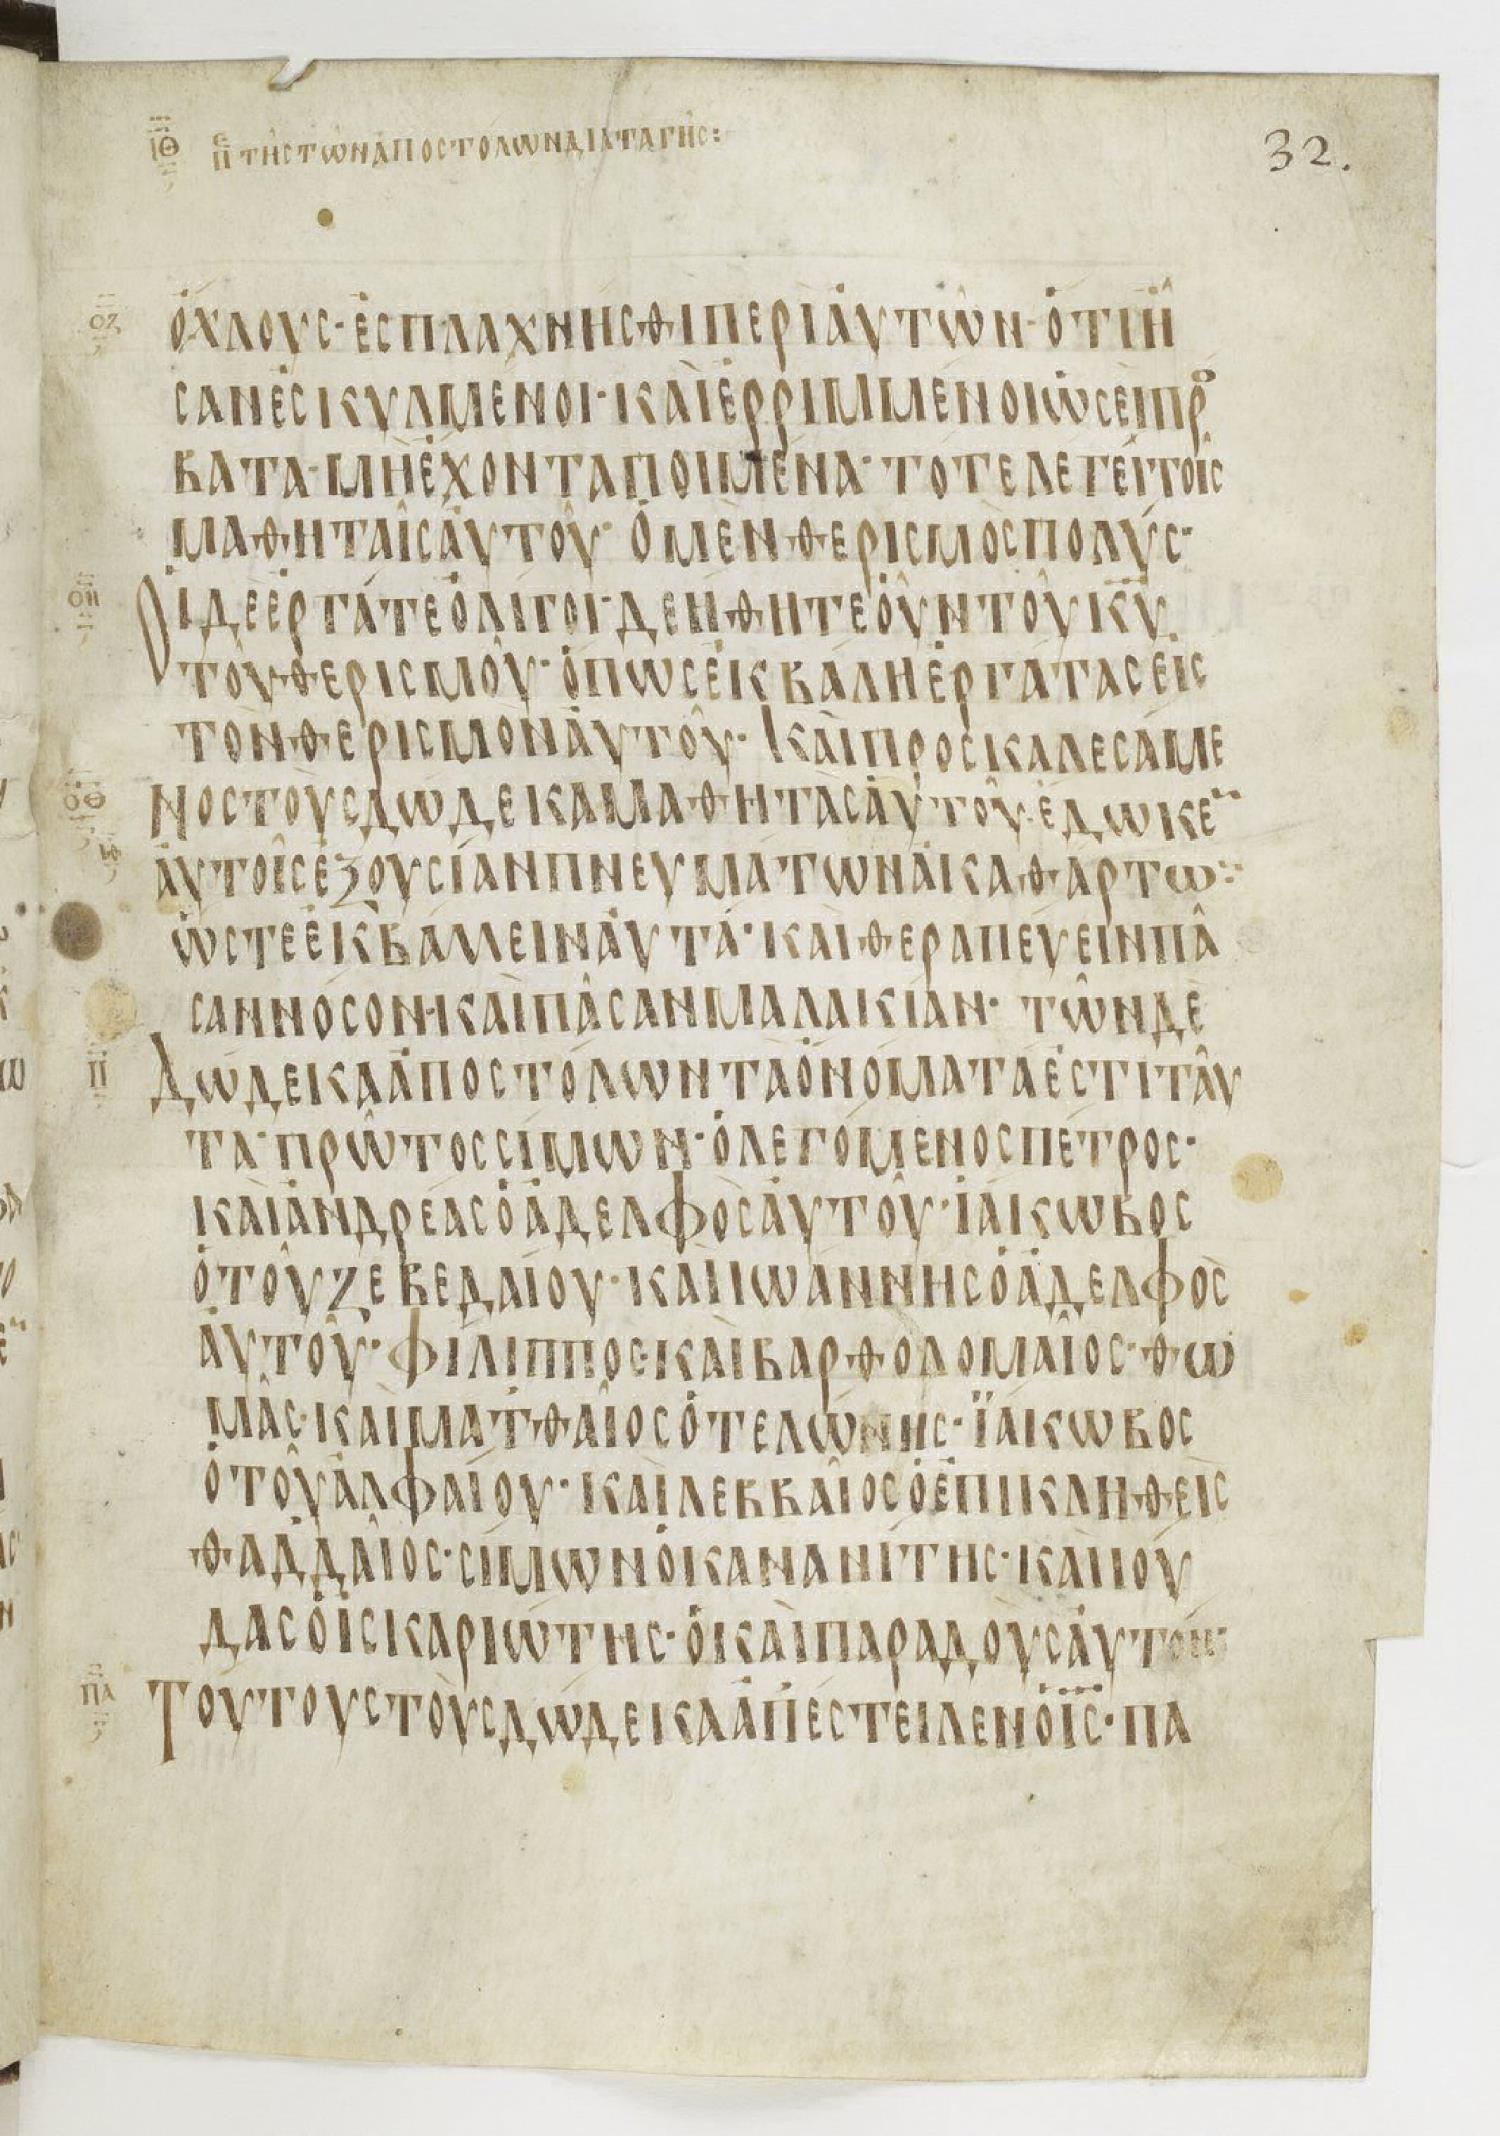 ΙΘ ΠΕ ΤΗΣ ΤΩΝ ΑΠΟΣΤΟΛΩΝ ΔΙΑΤΑΓΗΣ:
32.
ΟΖ ὄχλους· ἐσπλαχνήσθι περὶ ἀυτῶν· ὅτι ἦ
σαν ἐσκυλμένοι· καὶ ἐρριμμένοι ὡσεὶ πρό
βατα· μὴ ἔχοντα ποιμένα· τότε λέγει τοῖς
μαθηταῖς ἀυτοῦ· Ὁ μὲν θερισμὸς πολύς·
ΟΗ Οἱ δὲ ἐργάτε ὀλίγοι· δεήθητε οὖν τοῦ κυ
τοῦ θερισμοῦ· ὅπως ἐκβάλη ἐργάτας εἰς
τὸν θερισμὸν ἀυτοῦ· Καὶ προσκαλεσάμε
ΟΘ νος τοὺς δώδεκα μαθητὰς ἀυτοῦ· ἔδωκεν
ἀυτοῖς ἐξουσίαν πνευμάτων ἀκαθάρτων
ὥστε ἐκβάλλειν ἀυτά· καὶ θεραπεύειν πᾶ
σαν νόσον· καὶ πᾶσαν μαλακίαν· τῶν δὲ
Π Δώδεκα ἀποστόλων τὰ ὀνόματα ἐστὶ ταῦ
τα· πρῶτος σίμων· ὁ λεγόμενος πέτρος·
καὶ ἀνδρέας ὁ ἀδελφὸς ἀυτοῦ· ἰάκωβος
ὁ τοῦ ζεβεδαίου· καὶ ἰωάννης ὁ ἀδελφὸς
ἀυτοῦ· φίλιππος· καὶ βαρθολομαῖος· θω
μᾶς· καὶ ματθαῖος ὁ τελώνης· ϊάκωβος
ὁ τοῦ ἀλφαίου· καὶ λεββαῖος ὁ ἐπικληθεὶς
θαδδαῖος· σίμων ὁ κανανίτης· καὶ ιού
δας ὁ ἰσκαριώτης· ὁ καὶ παραδοὺς ἀυτόν·
ΠΑ Τούτους τοὺς δώδεκα ἀπέστειλεν ὁ ϊς· πα